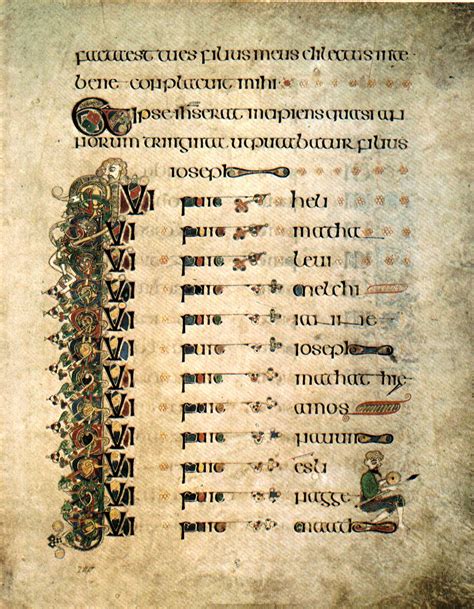 factaest tues filius meus dilectus inte
bene conplacuit mihi
Et ipse ihs erat incipiens quasi an
norum triginta ut putabatur filius
ioseph
QUI fuit heli
QUI fuit matha
QUI fuit leui
QUI fuit melchi
QUI fuit ianne
QUI fuit ioseph
QUI fuit mathathie
QUI fuit amos
QUI fuit nauum
QUI fuit esli
QUI fuit nagge
QUI fuit maath